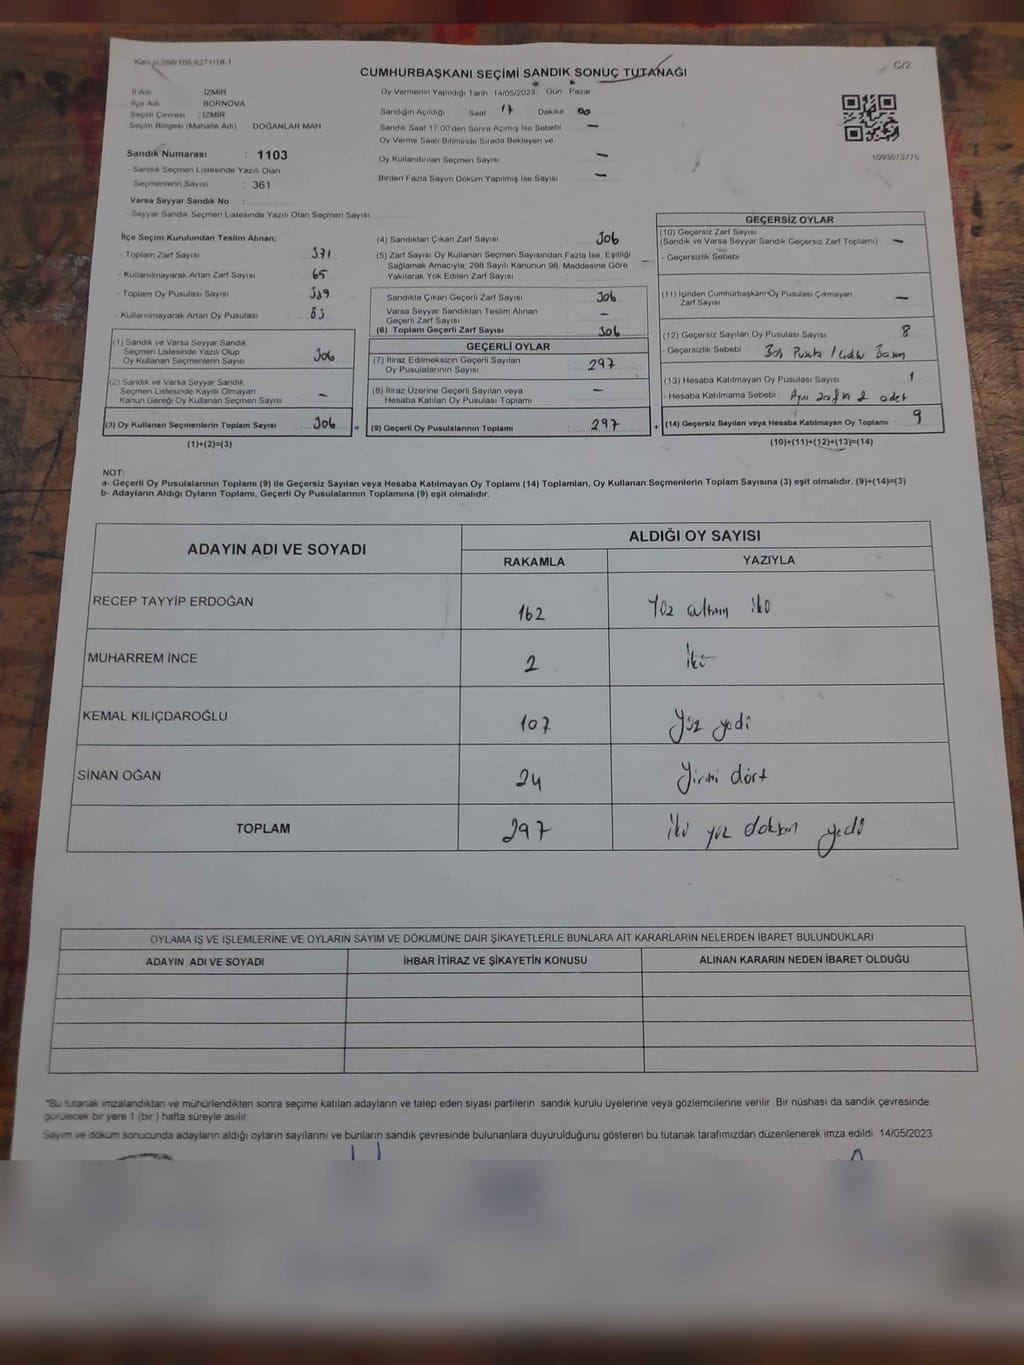 Kanun 298/105,6271/18-1
C/2
CUMHURBAŞKANI SEÇİMİ SANDIK SONUÇ TUTANAĞI
İl Adı : İZMİR
İlçe Adı : BORNOVA
Seçim Çevresi : İZMİR
Seçim Bölgesi (Mahalle Adı) DOĞANLAR MAH
Sandık Numarası : 1103
- Sandık Seçmen Listesinde Yazılı Olan
Seçmenlerin Sayısı : 361
Varsa Seyyar Sandık No :
- Seyyar Sandık Seçmen Listesinde Yazılı Olan Seçmen Sayısı:
Oy Vermenin Yapıldığı Tarih 14/05/2023 Gün Pazar
Sandığın Açıldığı Saat 17 Dakika 00
Sandık Saat 17:00'den Sonra Açımış İse Sebebi —
Oy Verme Saati Bitiminde Sırada Bekleyen ve
Oy Kullandırılan Seçmen Sayısı —
Birden Fazla Sayım Döküm Yapılmış İse Sayısı —
1093573775
İlçe Seçim Kurulundan Teslim Alınan;
- Toplam Zarf Sayısı 371
- Kullanılmayarak Artan Zarf Sayısı 65
- Toplam Oy Pusulası Sayısı 389
- Kullanılmayarak Artan Oy Pusulası 83
(1) Sandık ve Varsa Seyyar Sandık
Seçmen Listesinde Yazılı Olup
Oy Kullanan Seçmenlerin Sayısı 306
(2) Sandık ve Varsa Seyyar Sandık
Seçmen Listesinde Kayıtlı Olmayan
Kanun Gereği Oy Kullanan Seçmen Sayısı —
(3) Oy Kullanan Seçmenlerin Toplam Sayısı 306 =
(1)+(2)=(3)
(4) Sandıktan Çıkan Zarf Sayısı 306
(5) Zarf Sayısı Oy Kullanan Seçmen Sayısından Fazla İse, Eşitliği
Sağlamak Amacıyla, 298 Sayılı Kanunun 98. Maddesine Göre
Yakılarak Yok Edilen Zarf Sayısı —
Sandıkta Çıkan Geçerli Zarf Sayısı 306
Varsa Seyyar Sandıktan Teslim Alınan
Geçerli Zarf Sayısı —
(6) Toplam Geçerli Zarf Sayısı 306
GEÇERLİ OYLAR
(7) İtiraz Edilmeksizin Geçerli Sayılan
Oy Pusulalarının Sayısı 297
(8) İtiraz Üzerine Geçerli Sayılan veya
Hesaba Katılan Oy Pusulası Toplamı —
(9) Geçerli Oy Pusulalarının Toplamı 297 +
GEÇERSİZ OYLAR
(10) Geçersiz Zarf Sayısı
(Sandık ve Varsa Seyyar Sandık Geçersiz Zarf Toplamı) —
- Geçersizlik Sebebi
(11) İçinden Cumhurbaşkanı Oy Pusulası Çıkmayan
Zarf Sayısı —
(12) Geçersiz Sayılan Oy Pusulası Sayısı 8
- Geçersizlik Sebebi : Boş Pusula /
(13) Hesaba Katılmayan Oy Pusulası Sayısı 1
- Hesaba Katılmama Sebebi : Aynı zarfta 2 adet
(14) Geçersiz Sayılan veya Hesaba Katılmayan Oy Toplamı 9
(10)+(11)+(12)+(13)=(14)
NOT:
a- Geçerli Oy Pusulalarının Toplamı (9) ile Geçersiz Sayılan veya Hesaba Katılmayan Oy Toplamı (14) Toplamları, Oy Kullanan Seçmenlerin Toplam Sayısına (3) eşit olmalıdır. (9)+(14)=(3)
b- Adayların Aldığı Oyların Toplamı, Geçerli Oy Pusulalarının Toplamına (9) eşit olmalıdır.
ADAYIN ADI VE SOYADI
ALDIĞI OY SAYISI
RAKAMLA YAZIYLA
RECEP TAYYİP ERDOĞAN 162 Yüz altmış iki
MUHARREM İNCE 2 iki
KEMAL KILIÇDAROĞLU 107 Yüz yedi
SİNAN OĞAN 24 Yirmi dört
TOPLAM 297 iki yüz doksan yedi
OYLAMA İŞ VE İŞLEMLERİNE VE OYLARIN SAYIM VE DÖKÜMÜNE DAİR ŞİKAYETLERLE BUNLARA AİT KARARLARIN NELERDEN İBARET BULUNDUKLARI
ADAYIN ADI VE SOYADI İHBAR İTİRAZ VE ŞİKAYETİN KONUSU ALINAN KARARIN NEDEN İBARET OLDUĞU
*Bu tutanak imzalandıktan ve mühürlendikten sonra seçime katılan adayların ve talep eden siyasi partilerin sandık kurulu üyelerine veya gözlemcilerine verilir. Bir nüshası da sandık çevresinde
görülecek bir yere 1 (bir) hafta süreyle asılır.
Sayım ve döküm sonucunda adayların aldığı oyların sayılarını ve bunların sandık çevresinde bulunanlara duyurulduğunu gösteren bu tutanak tarafımızdan düzenlenerek imza edildi. 14/05/2023